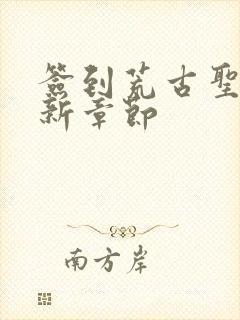 簽到荒古聖
新章節
南方岸